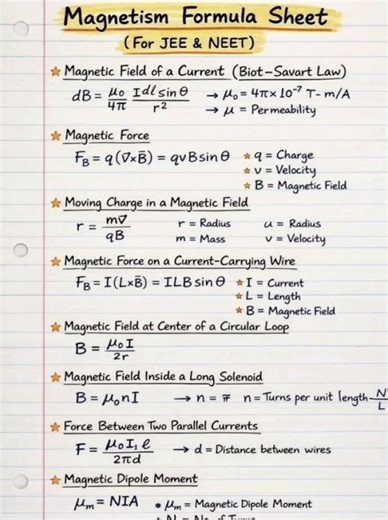 Magnetism Formula Sheet
(For JEE & NEET)
☆ Magnetic Field of a Current (Biot-Savart Law)
dB = μ₀/4π Idl sin θ/r² → μ₀ = 4π×10⁻⁷ T-m/A
→ μ = Permeability
☆ Magnetic Force
F_B = q(∇×B̄) = qvB sin θ ☆ q = Charge
☆ v = Velocity
☆ B = Magnetic Field
☆ Moving Charge in a Magnetic Field
r = m∇/qB r = Radius u = Radius
m = Mass v = Velocity
☆ Magnetic Force on a Current-Carrying Wire
F_B = I(L×B̄) = ILB sin θ ☆ I = Current
☆ L = Length
☆ B = Magnetic Field
☆ Magnetic Field at Center of a Circular Loop
B = μ₀I/2r
☆ Magnetic Field Inside a Long Solenoid
B = μ₀nI → n = n = Turns per unit length-N/L
☆ Force Between Two Parallel Currents
F = μ₀I, ℓ/2πd → d = Distance between wires
☆ Magnetic Dipole Moment
μₘ = NIA • μₘ = Magnetic Dipole Moment